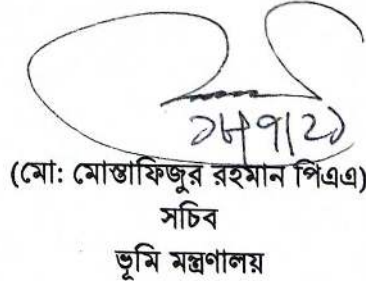 (মো: মোস্তাফিজুর রহমান পিএএ)
সচিব
ভূমি মন্ত্রণালয়